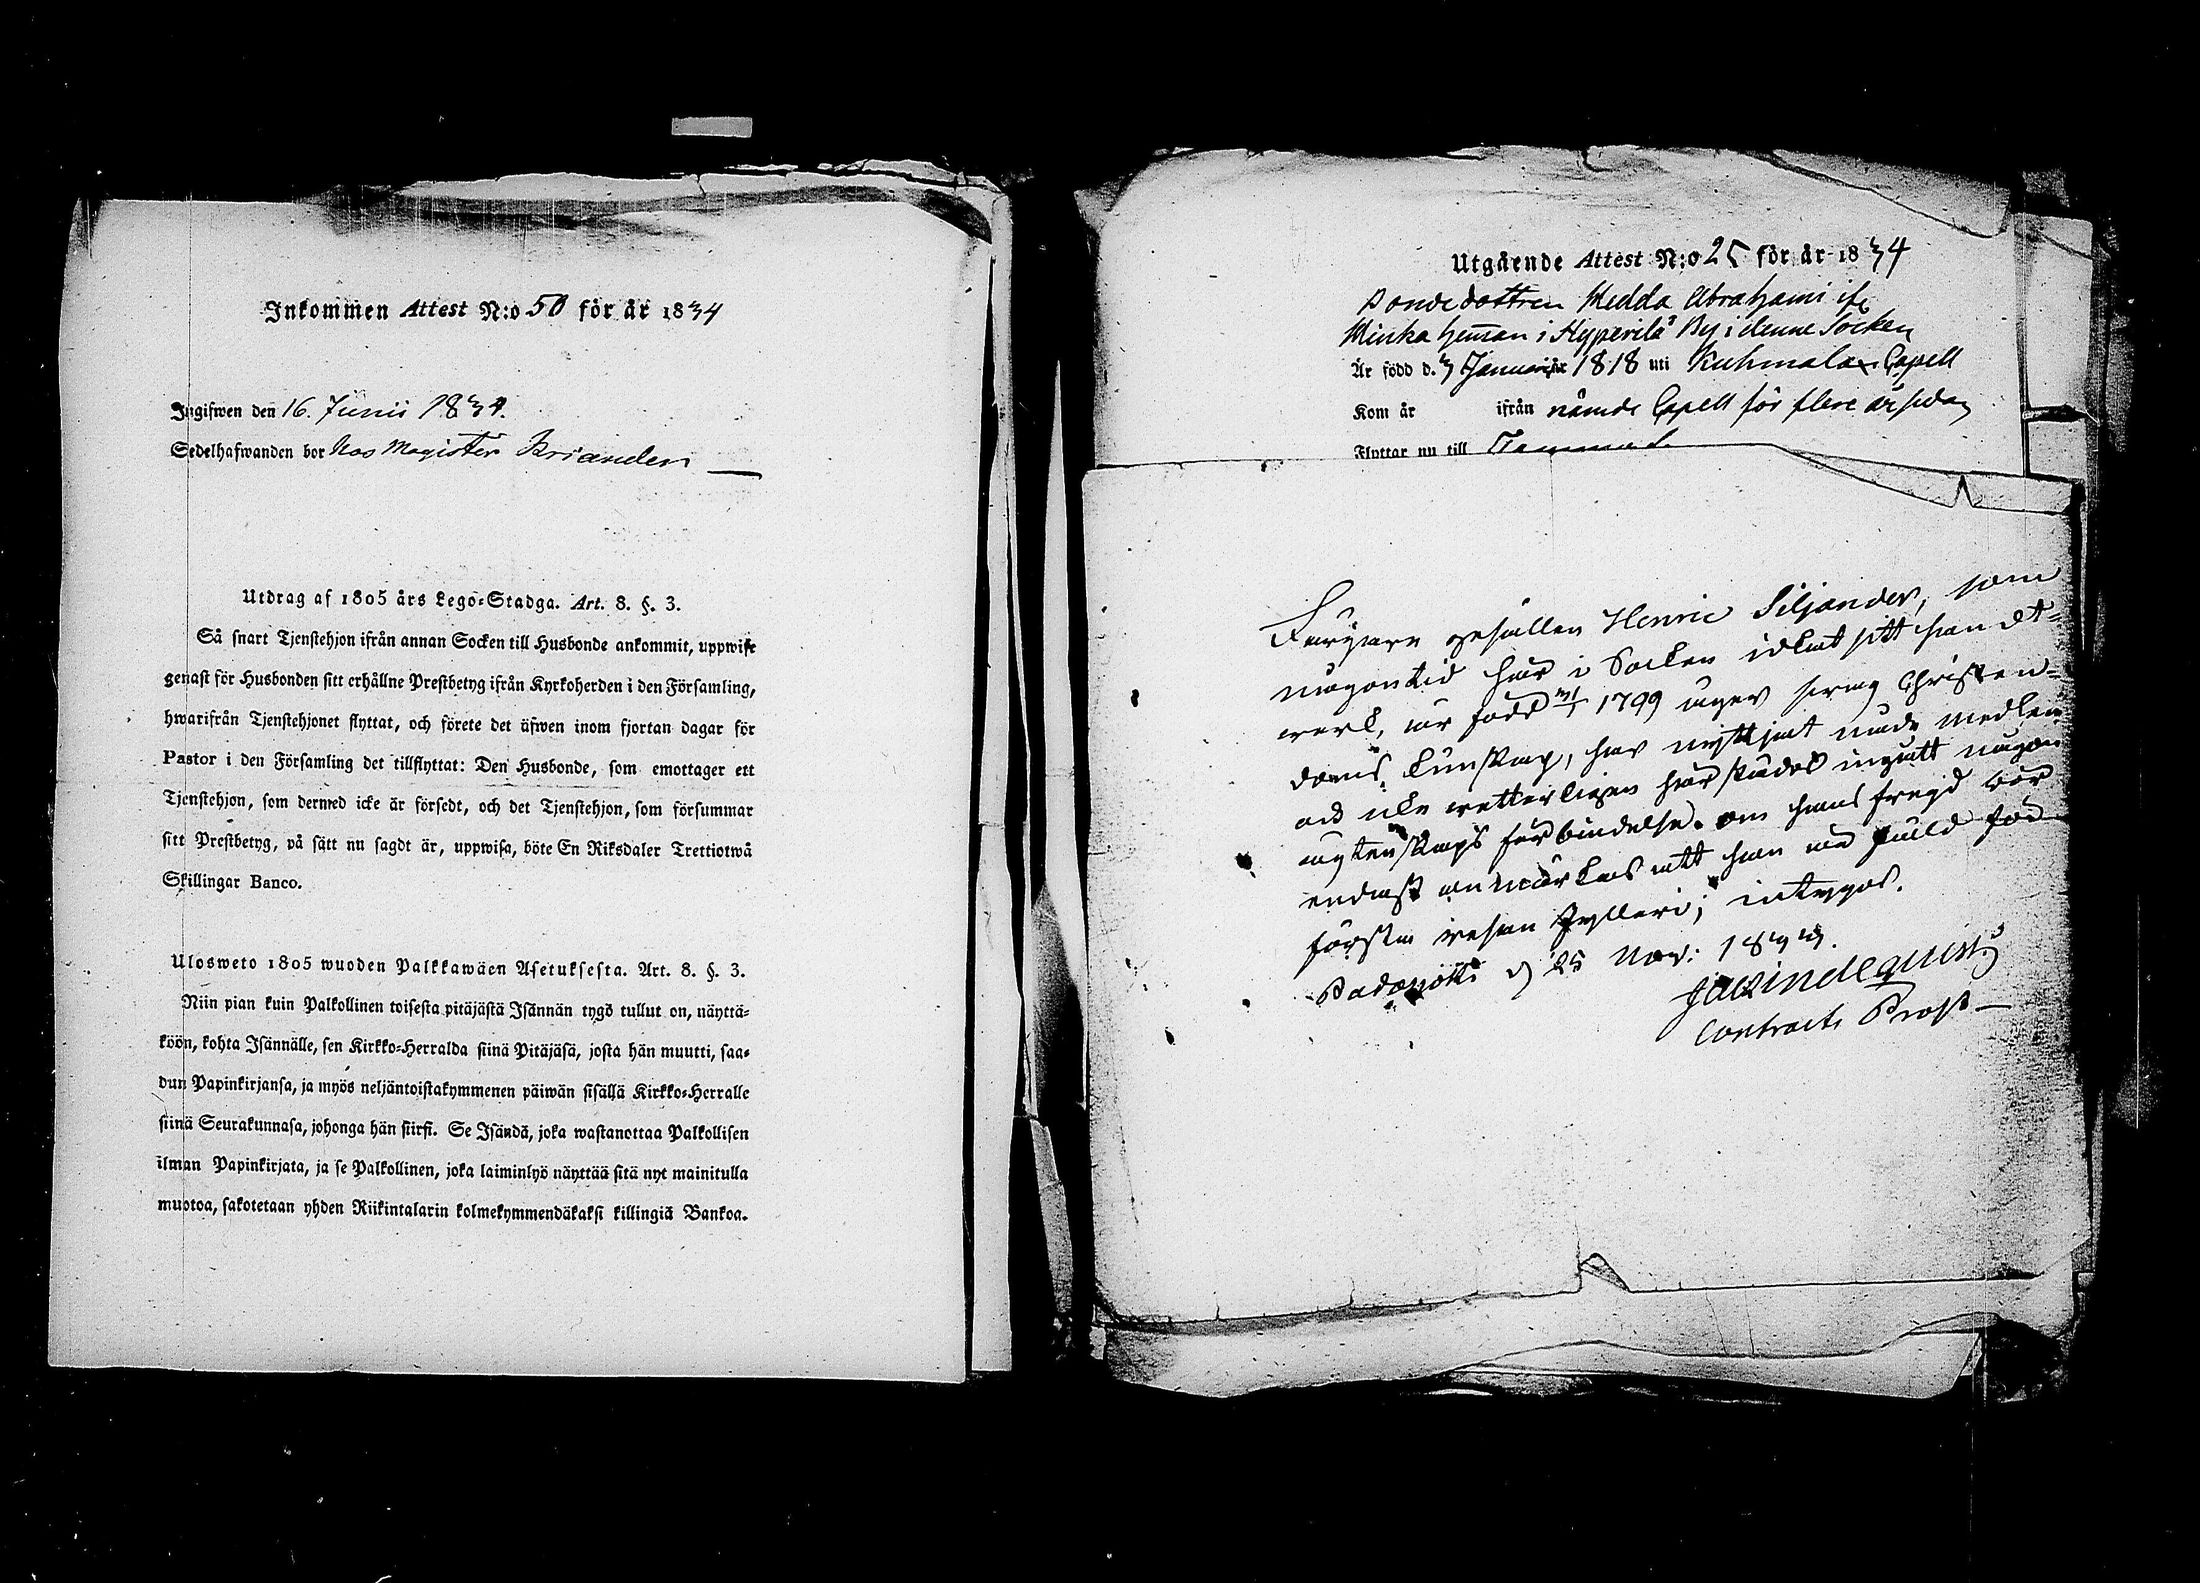 Inkommen Attest N:o 50 för år 1834
Ingifwen den 16. Junii 1834.
Sedelhafwanden bor hos Magister Kriander
Utdrag af 1805 års Lego-Stadga. Art. 8. §. 3.
Så snart Tjenstehjon ifrån annan Socken till Husbonde ankommit, uppwise
genast för Husbonden sitt erhållne Prestbetyg ifrån Kyrkoherden i den Församling,
hwarifrån Tjenstehjonet flyttat, och förete det äfwen inom fjortan dagar för
Pastor i den Församling det tillflyttat: Den Husbonde, som emottager ett
Tjenstehjon, som dermed icke är försedt, och det Tjenstehjon, som försummar
sitt Prestbetyg, på sätt nu sagdt är, uppwisa, böte En Riksdaler Trettiotwå
Skillingar Banco.
Ulosweto 1805 wuoden Palkkawäen Asetuksesta. Art. 8. §. 3.
Niin pian kuin Palkollinen toisesta pitäjästä Isännän tygö tullut on, näyttä-
köön, kohta Isännälle, sen Kirkko-Herralda siinä Pitäjäsä, josta hän muutti, saa-
dun Papinkirjansa, ja myös neljäntoistakymmenen päiwän sisällä Kirkko-Herralle
siinä Seurakunnasa, johonga hän siirsi. Se Isändä, joka wastanottaa Palkollisen
ilman Papinkirjata, ja se Palkollinen, joka laiminlyö näyttää sitä nyt mainitulla
muotoa, sakotetaan yhden Riikintalarin kolmekymmendäkaksi killingiä Bankoa.
Utgående Attest N:o 25 för år 1834
Bondedottren Hedda Abrahami ifr
heman i By i denne Socken
Är född d. 3 Januarii 1818 uti Kuhmalax Capell
Kom år ifrån nämde Capell för flere år sedan
Flyttar nu till
Färgare gesällen Henric Siljander, som
någon tid här i Socken idkat sitt handt-
werk, är född 1799 äger swag Christen-
doms kunskap, har nyttjat nåde medlen
och icke wetterligen härstädes ingått någon
ägtenskaps förbindelse. om hans fregd bör
endast anmärkas att han är fälld för
första resan fylleri; intygas.
Padasjoki d 25 Nov: 1833.
Contracts Prost